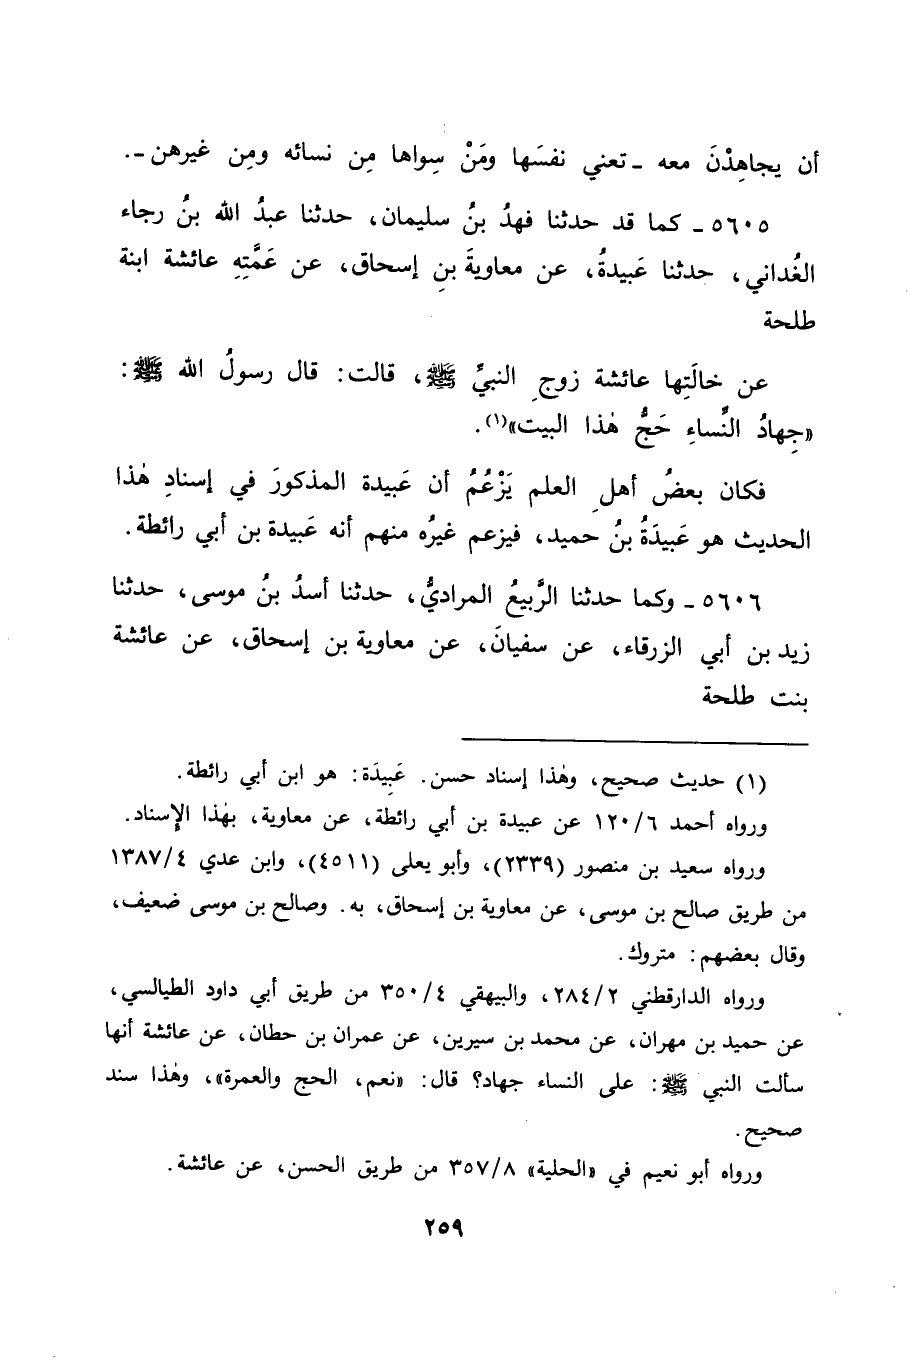 أن يجاهِدْنَ معه ـ تعني نفسَها ومَنْ سِواها مِن نسائه ومِن غيرهن ـ.
٥٦٠٥ ـ كما قد حدثنا فهدُ بنُ سليمان، حدثنا عبدُ الله بنُ رجاء
الغُداني، حدثنا عَبيدةُ، عن معاويةَ بنِ إسحاق، عن عَمَّتِهِ عائشة ابنة
طلحة
عن خالَتِها عائشة زوجِ النبيِّ ﷺ، قالت: قال رسولُ الله ﷺ:
«جِهادُ النِّساءِ حَجُّ هٰذا البيت»(١).
فكان بعضُ أهلِ العلم يَزْعُمُ أن عَبيدة المذكورَ في إسنادِ هٰذا
الحديث هو عَبيدَةُ بنُ حميد، فيزعم غيرُه منهم أنه عَبيدة بن أبي رائطة.
٥٦٠٦ ـ وكما حدثنا الرَّبيعُ المراديُّ، حدثنا أسدُ بنُ موسى، حدثنا
زيد بن أبي الزرقاء، عن سفيانَ، عن معاوية بن إسحاق، عن عائشة
بنت طلحة
(١) حديث صحيح، وهٰذا إسناد حسن. عَبِيدَة: هو ابن أبي رائطة.
ورواه أحمد ٦/١٢٠ عن عبيدة بن أبي رائطة، عن معاوية، بهٰذا الإسناد.
ورواه سعيد بن منصور (٢٣٣٩)، وأبو يعلى (٤٥١١)، وابن عدي ٤/١٣٨٧
من طريق صالح بن موسى، عن معاوية بن إسحاق، به. وصالح بن موسى ضعيف،
وقال بعضهم: متروك.
ورواه الدارقطني ٢/٢٨٤، والبيهقي ٤/٣٥٠ من طريق أبي داود الطيالسي،
عن حميد بن مهران، عن محمد بن سيرين، عن عمران بن حطان، عن عائشة أنها
سألت النبي ﷺ: على النساء جهاد؟ قال: «نعم، الحج والعمرة»، وهٰذا سند
صحيح.
ورواه أبو نعيم في «الحلية» ٨/٣٥٧ من طريق الحسن، عن عائشة.
٢٥٩